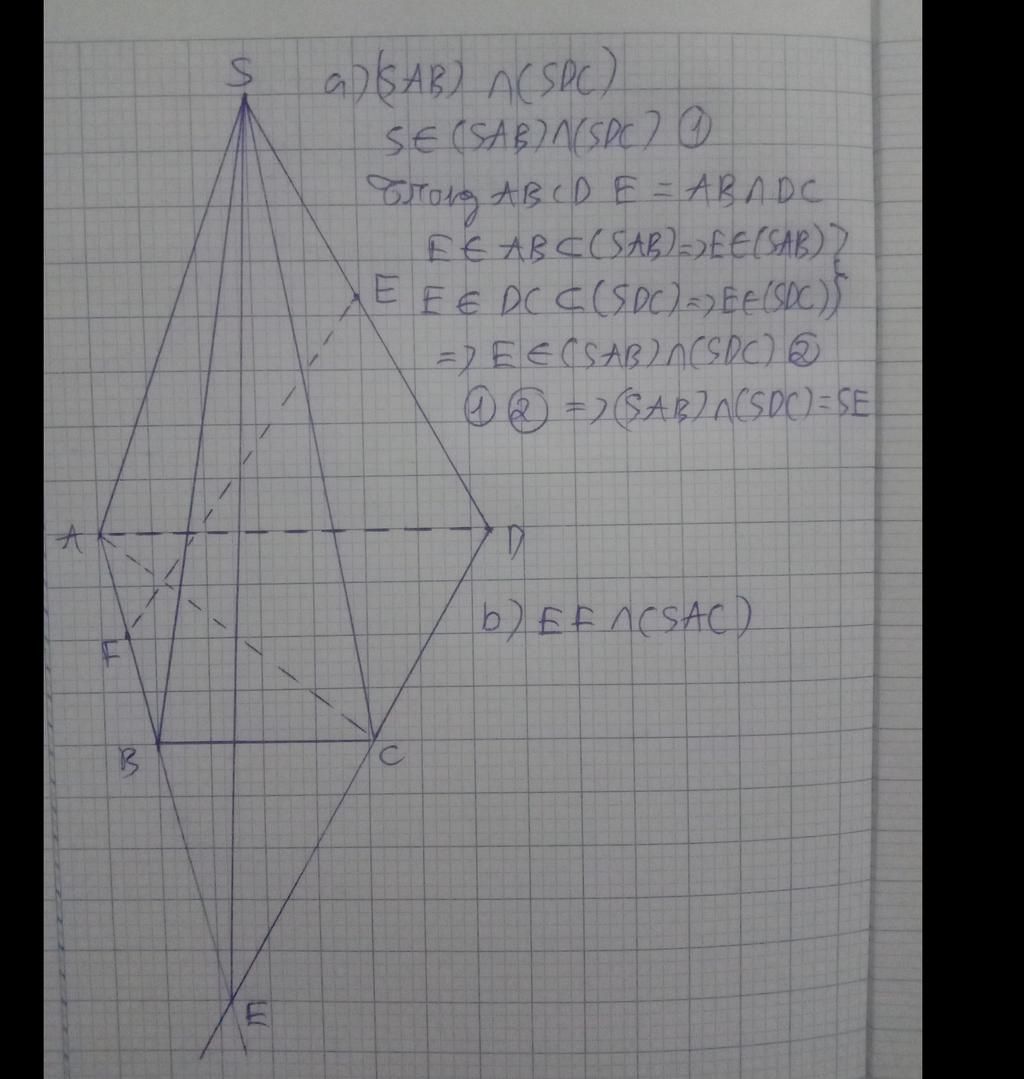 S
a) (SAB) ∩ (SDC)
S ∈ (SAB) ∩ (SDC) ①
Trong ABCD E = AB ∩ DC
E ∈ AB ⊂ (SAB) => E ∈ (SAB) }
E
E ∈ DC ⊂ (SDC) => E ∈ (SDC) }
=> E ∈ (SAB) ∩ (SDC) ②
① ② => (SAB) ∩ (SDC) = SE
A
D
b) EF ∩ (SAC)
F
B
C
E